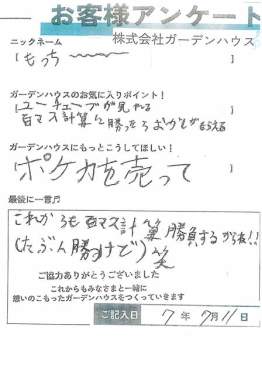 お客様アンケート
株式会社ガーデンハウス
ニックネーム
【もっち】
ガーデンハウスのお気に入りポイント!
【ユーチューブが見れる
百マス計算で勝ったらおかしがもらえる】
ガーデンハウスにもっとこうしてほしい!
【ポケカを売って】
最後に一言♬
これからも百マス計算勝負するからね!!
(たぶん勝つけど)笑
ご協力ありがとうございました
これからもみなさまと一緒に
想いのこもったガーデンハウスをつくっていきます
ご記入日 7年7月11日